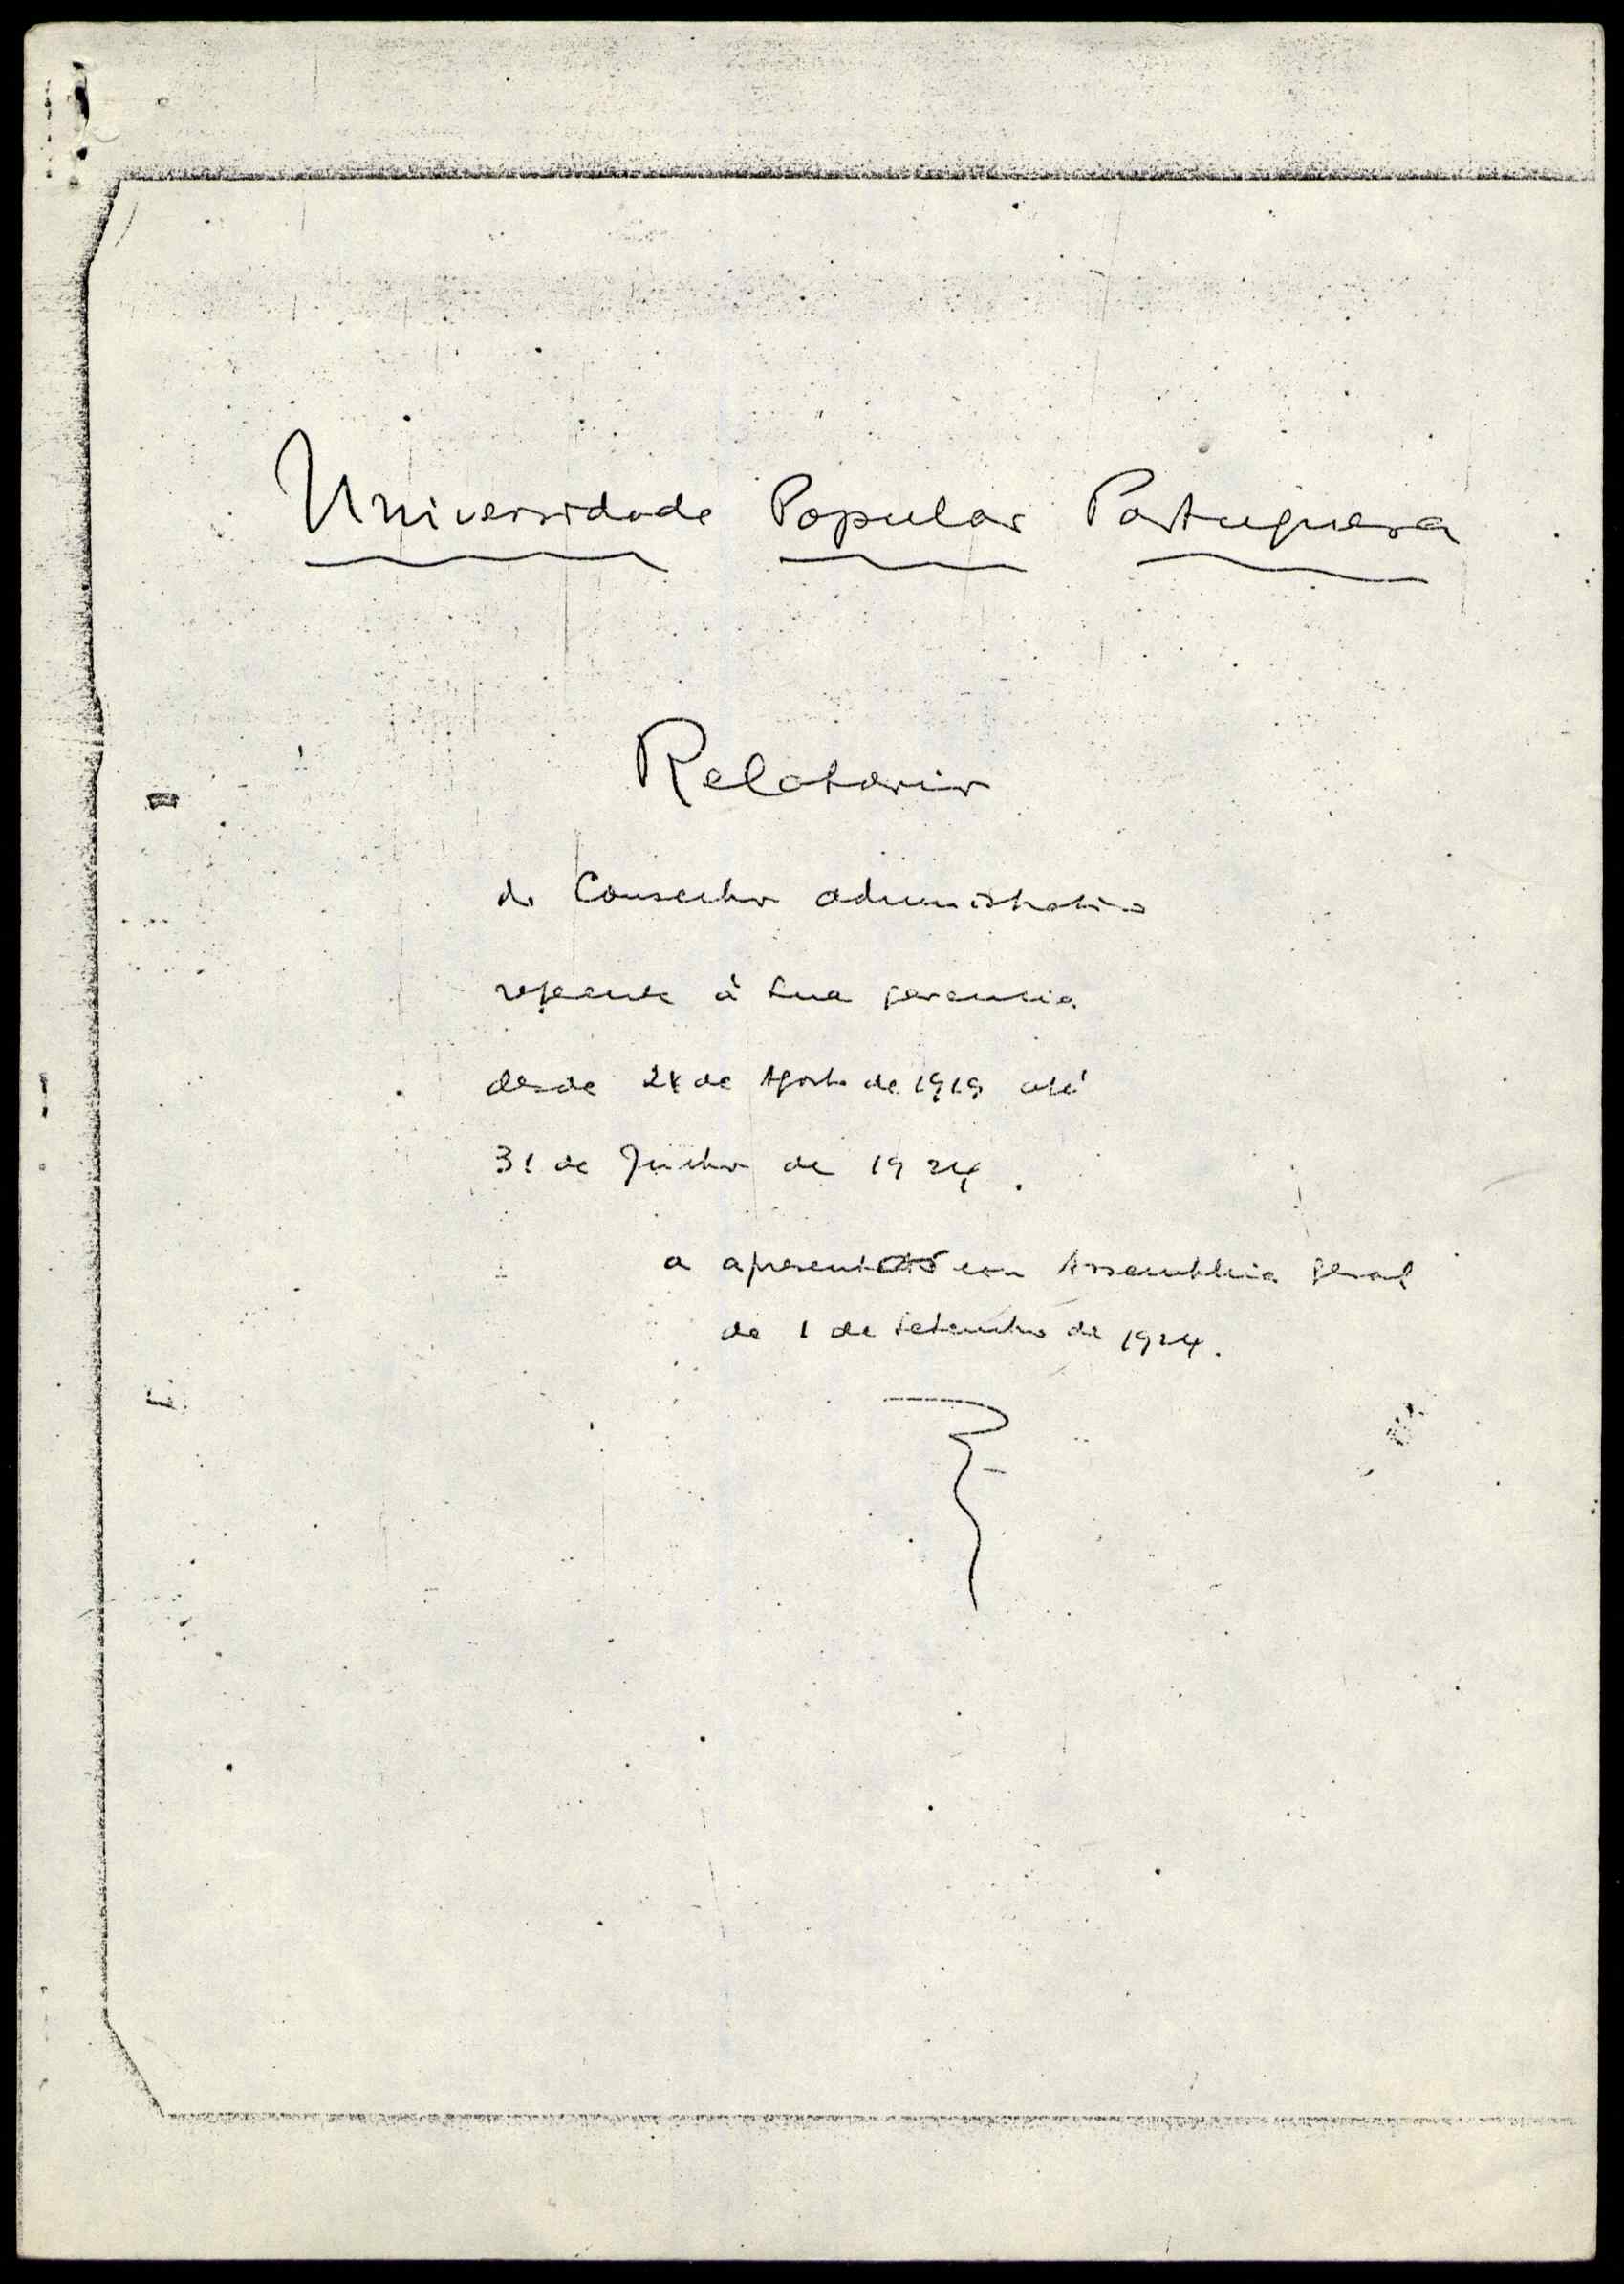 Universidade Popular Portuguesa
Relatorio
do Conselho administrativo
referente à sua gerencia
desde 24 de Agosto de 1919 até
31 de Julho de 1924.
a apresentar em Assembleia geral
de 1 de setembro de 1924.